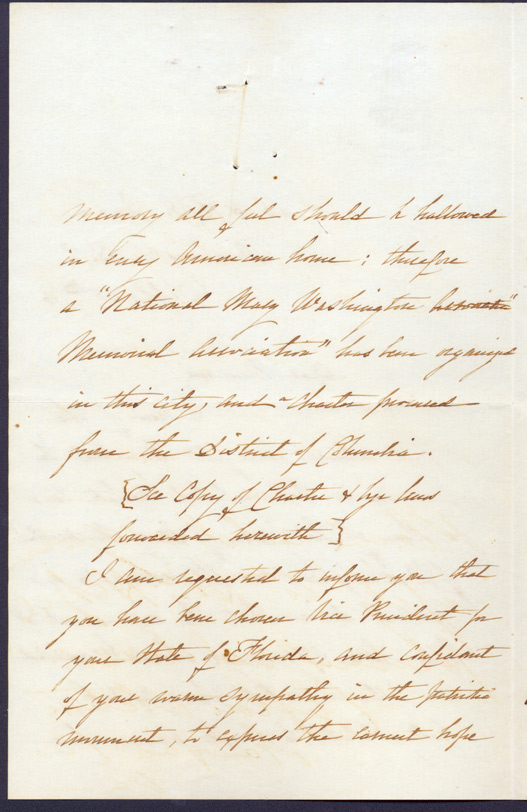 memory all feel should be hallowed
in every American home; therefore
a "National Mary Washington Association"
Memorial Association" has been organized
in this city, and a Charter procured
from the District of Columbia.
{See Copy of Charter & bye laws
forwarded herewith}
I am requested to inform you that
you have been chosen Vice President for
your State of Florida, and confident
of your warm sympathy in the patriotic
movement, to express the earnest hope